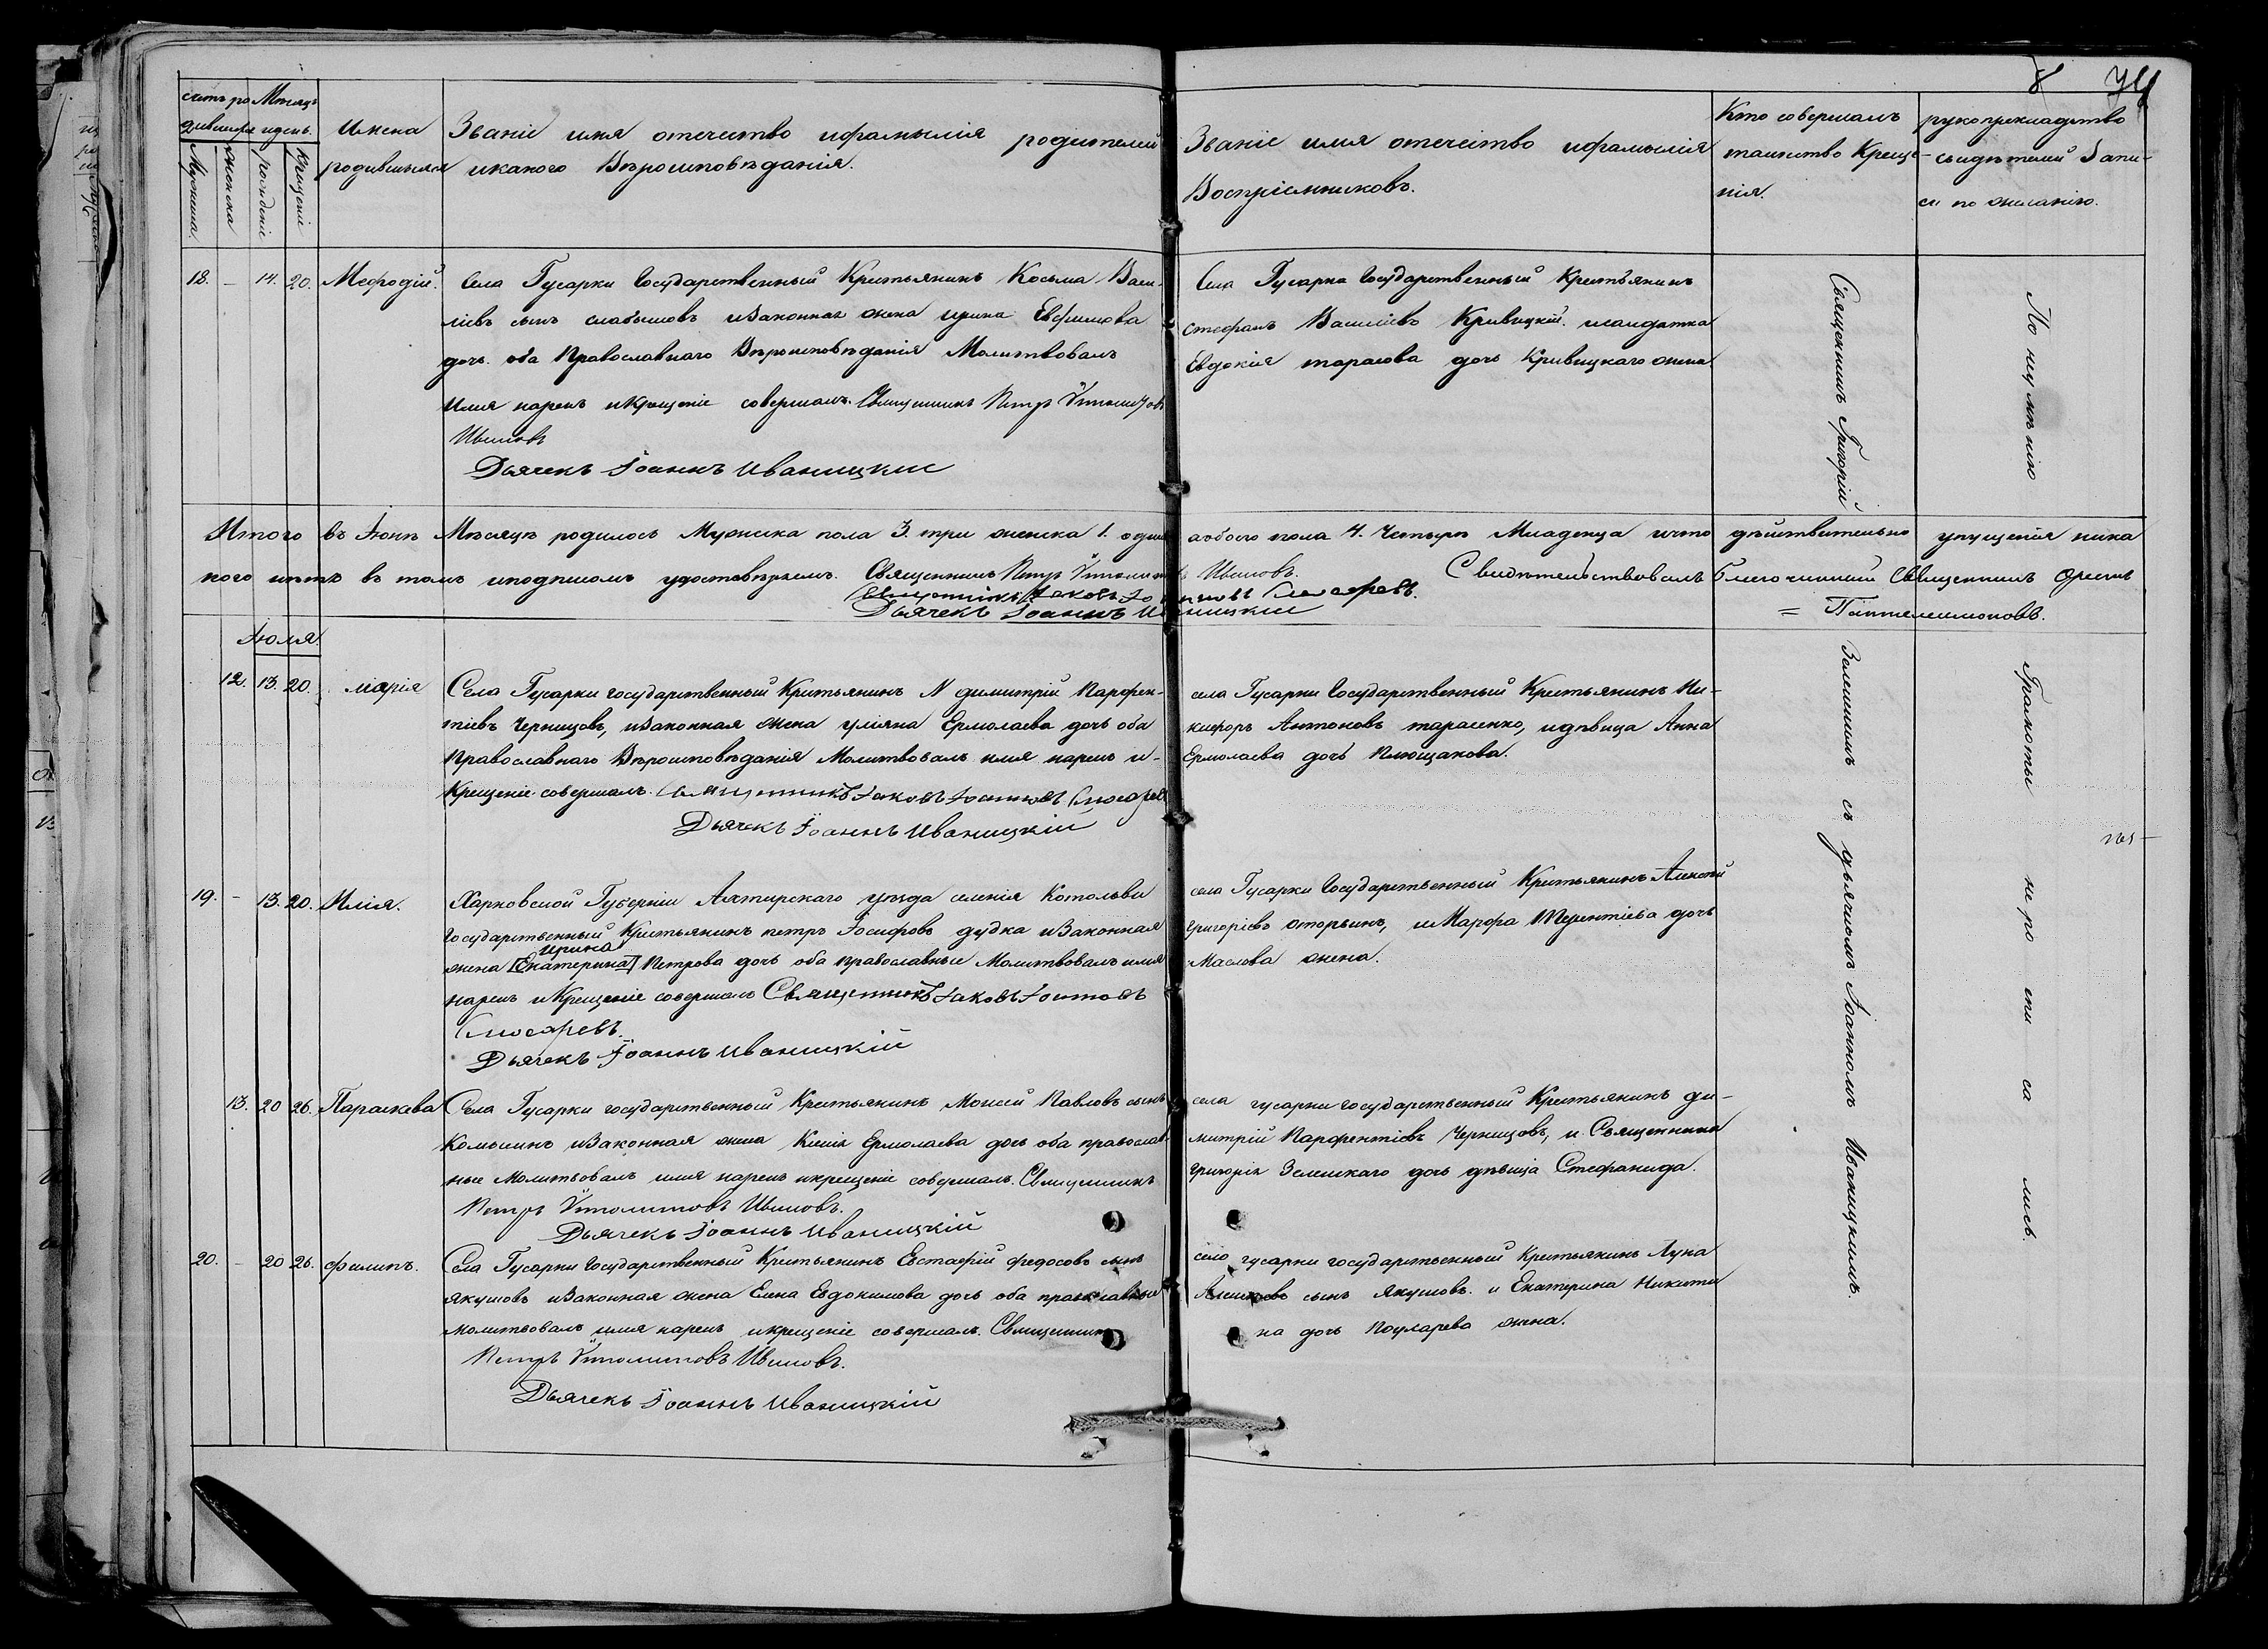 8 74
счетъ ро Мѣсяцъ
дившихся идень.
Мужеска Женска рожденіе крещеніе
Имена
родившихся
Званіе имя отечество ифамылія родителей
икакого Вѣроисповѣданія.
Званіе имя отечество ифамылія
Воспріемниковъ.
Кто совершалъ
таинство Креще-
нія.
рукоприкладство
свидѣтелей Запи-
си по желанію.
18. – 14. 20. Мефодій.
Села Гусарки Государственный Крестьянинъ Косьма Васи-
ліевъ сынъ слабышовъ иЗаконная жена ирина Евфимова
дочь. оба Православнаго Вѣроисповѣданія Молитвовалъ
имя нарекъ иКрещеніе совершалъ. Священникъ Петръ
Ивановъ
Дьячекъ Іоаннъ Иваницкій
Села Гусарка Государственный Крестьянинъ
Стефанъ Василіевъ Кривицкій. исолдатка
Евдокія тарасова дочь Кривицкаго жена.
Итого въ Іюнѣ Мѣсяцѣ родилось Мужеска пола 3. три женска 1. одна аобоего пола 4. Четыре Младенца ичто дѣйствительно упущенія ника
кого нѣтъ въ томъ иподписомъ удостовѣряемъ. Священникъ Петръ Ивановъ. Свидѣтельствовалъ Благочинный Священникъ
Священникъ Іаковъ Слюсаревъ. = Пантелеимоновъ.
Дьячекъ Іоаннъ Иваницкій
Іюля.
12. 13. 20. марія
Села Гусарки государственный Крестьянинъ димитрій Парфен-
тіевъ Чернцовъ, иЗаконная жена уліяна Ермолаева дочь оба
Православнаго Вѣроисповѣданія Молитвовалъ имя нарекъ и-
Крещеніе совершалъ. Священникъ Іаковъ Слюсаревъ
Дьячекъ Іоаннъ Иваницкій
села Гусарки Государственный Крестьянинъ Ни-
кифоръ Антоновъ тарасенко, идѣвица Анна
Ермолаева дочь Клющакова.
19. – 13. 20. Илія.
Харковской Губерніи Ахтирскаго уѣзда селенія Котельвы
государственный Крестьянинъ петръ Іосифовъ дудка иЗаконная
ирина
жена [Екатерина] Петрова дочь оба православные Молитвовалъ имя
нарекъ иКрещеніе совершалъ Священникъ Іаковъ
Слюсаревъ.
Дьячекъ Іоаннъ Иваницкій
села Гусарки Государственный Крестьянинъ Алексѣй
григоріевъ оторвинъ, иМарфа Терентіева дочь
Маслова жена.
13. 20 26. Параскева
Села Гусарки государственный Крестьянинъ Моисей Павловъ сынъ
Комынинъ иЗаконная жена Ксенія Ермолаева дочь оба православ-
ные Молитвовалъ имя нарекъ икрещеніе совершалъ. Священникъ
Петръ Ивановъ.
Дьячекъ Іоаннъ Иваницкій
села гусарки государственный Крестьянинъ ди-
митрій Парфентіевъ Чернцовъ, и Священника
григорія Зелемскаго дочь дѣвица Стефанида.
20. – 20 26. филипъ.
Села Гусарки Государственный Крестьянинъ Евстафій федосовъ сынъ
якушовъ иЗаконная жена Елена Евдокимова дочь оба православные
молитвовалъ имя нарекъ икрещеніе совершалъ. Священникъ
Петръ Ивановъ.
Дьячекъ Іоаннъ Иваницкій
село гусарки государственный Крестьянинъ Лука
сынъ Якушовъ. и Екатерина Никити
на дочь жена.
Священникъ Григорій Зелемскимъ съ дьячкомъ Іоанномъ Иваницкимъ.
По неумѣнію Грамоты не росписались.